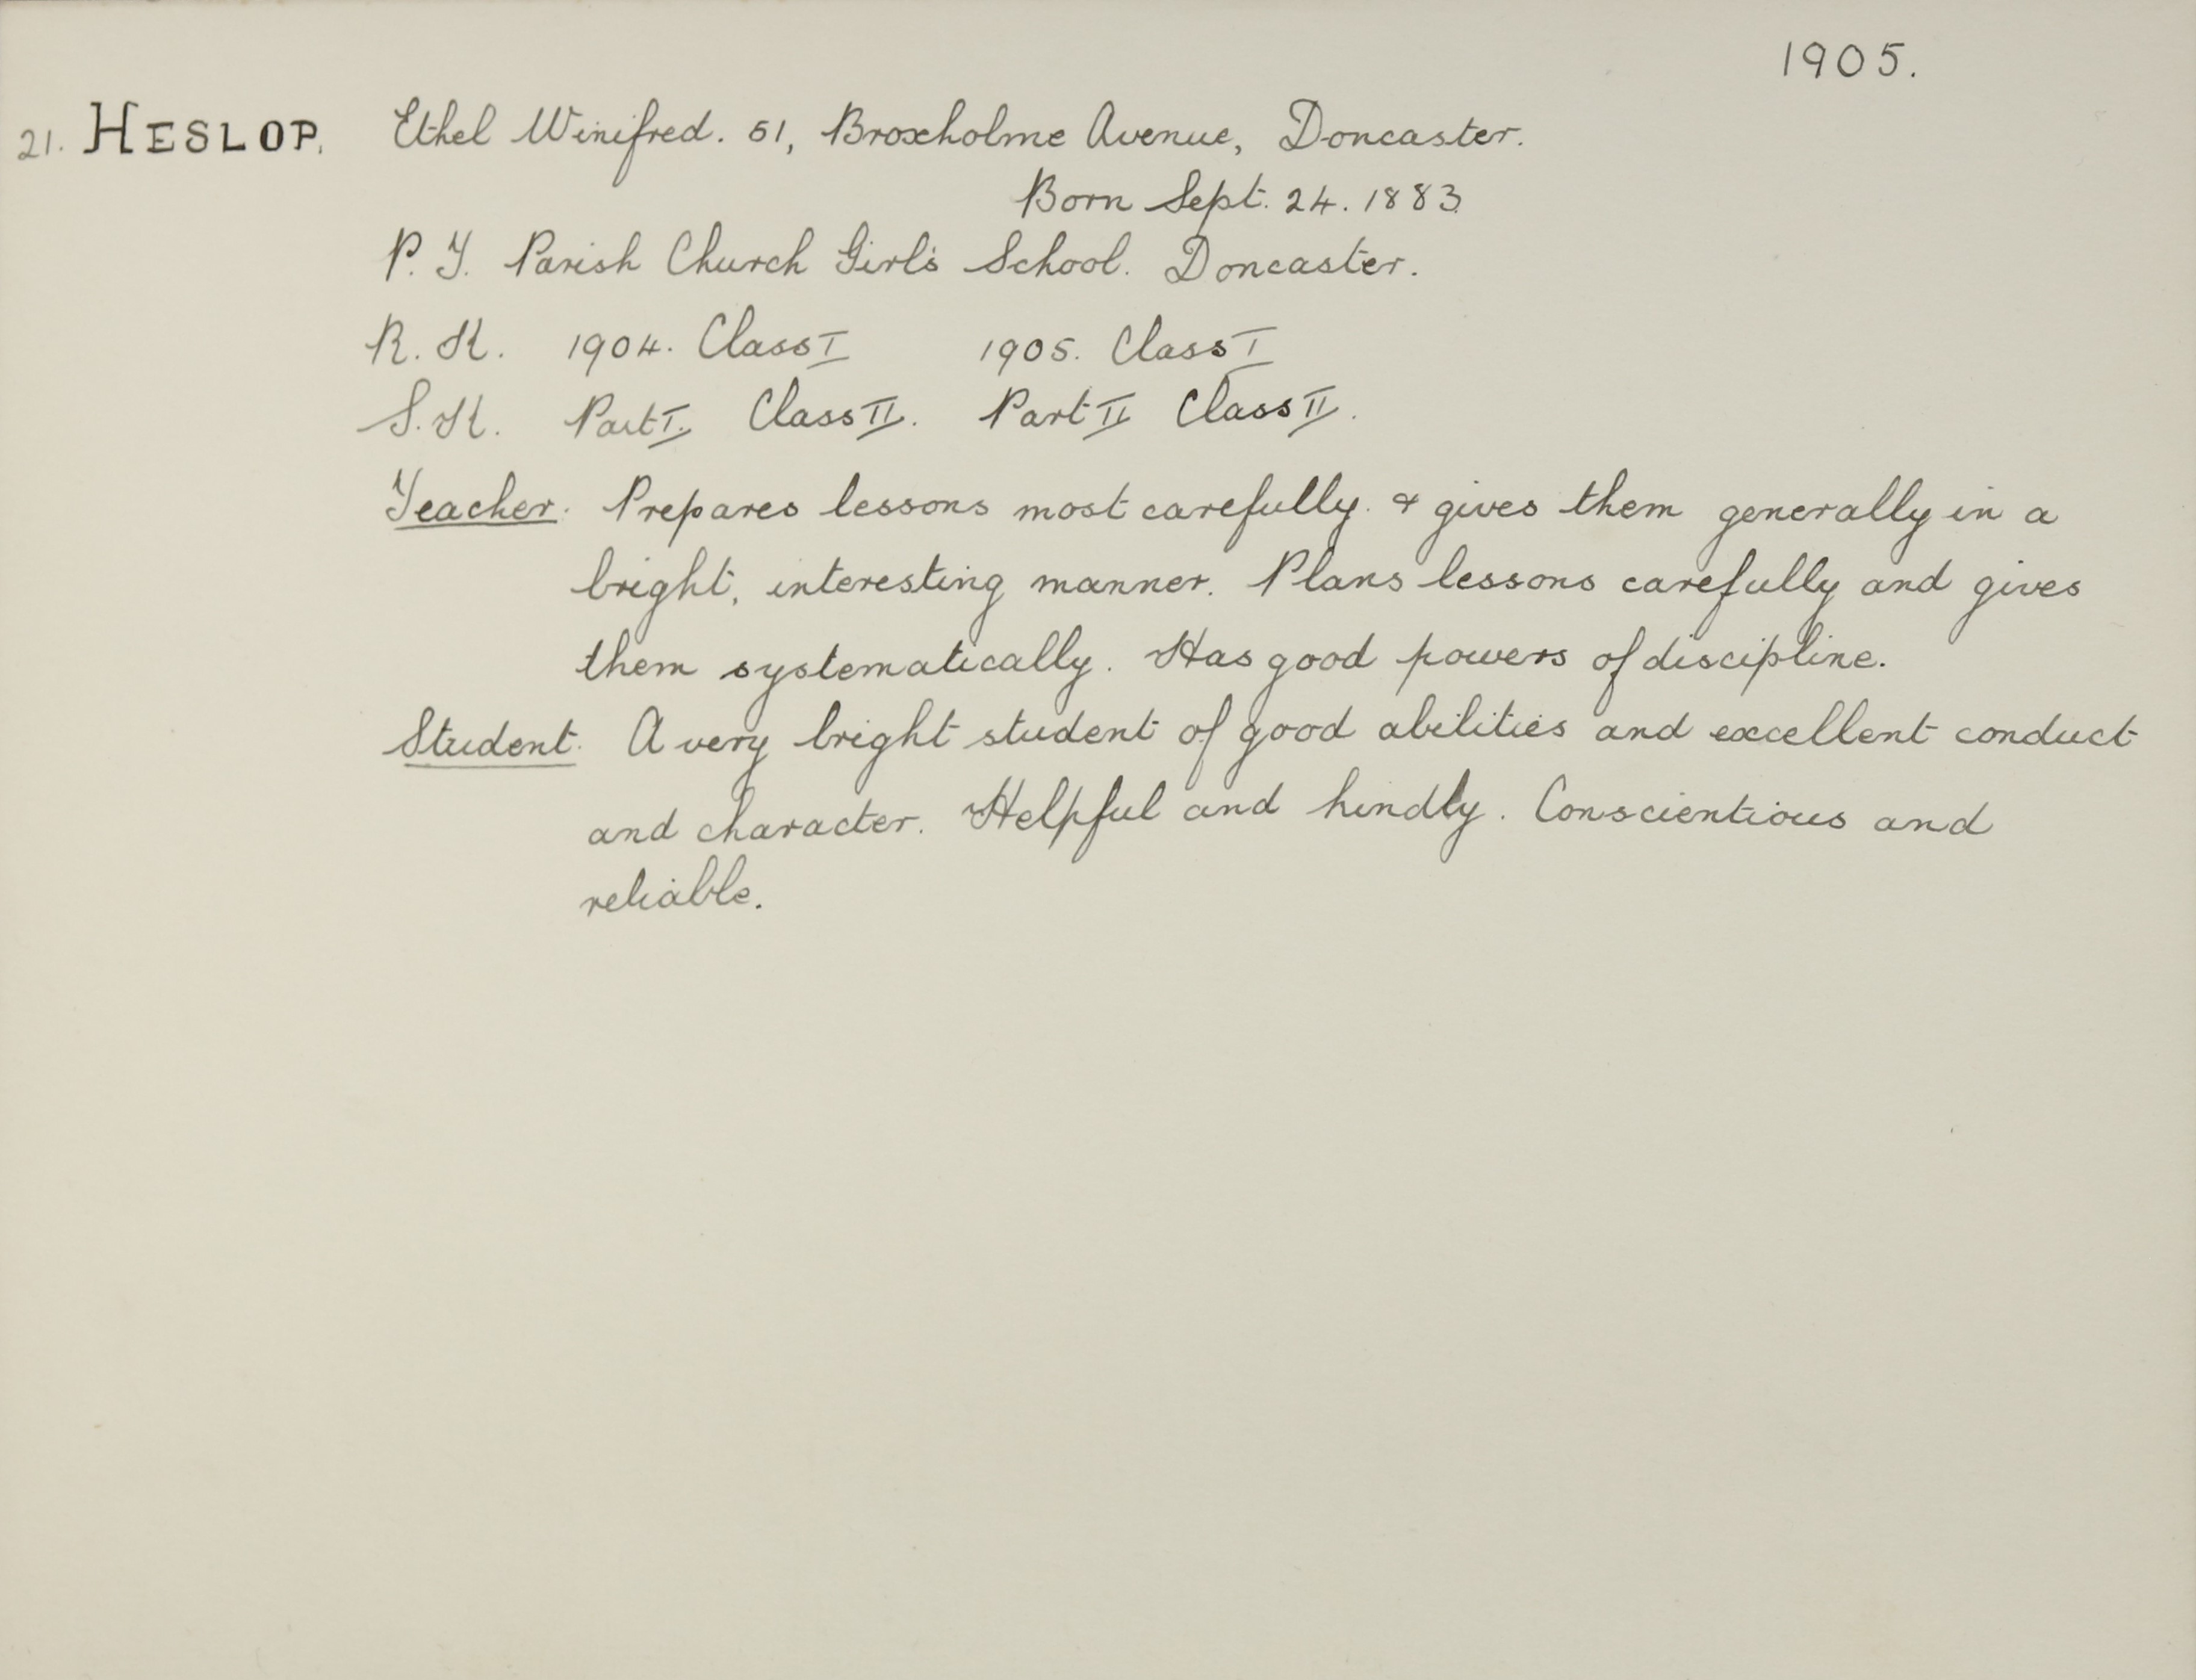 1905.
21. HESLOP. Ethel Winifred. 51, Broxholme Avenue, Doncaster.
Born Sept. 24. 1883
P. T. Parish Church Girl's School. Doncaster.
R. K. 1904. Class I 1905. Class I
S. K. Part I. Class II. Part II Class II.
Teacher. Prepares lessons most carefully. & gives them generally in a
bright, interesting manner. Plans lessons carefully and gives
them systematically. Has good powers of discipline.
Student. A very bright student of good abilities and excellent conduct
and character. Helpful and kindly. Conscientious and
reliable.